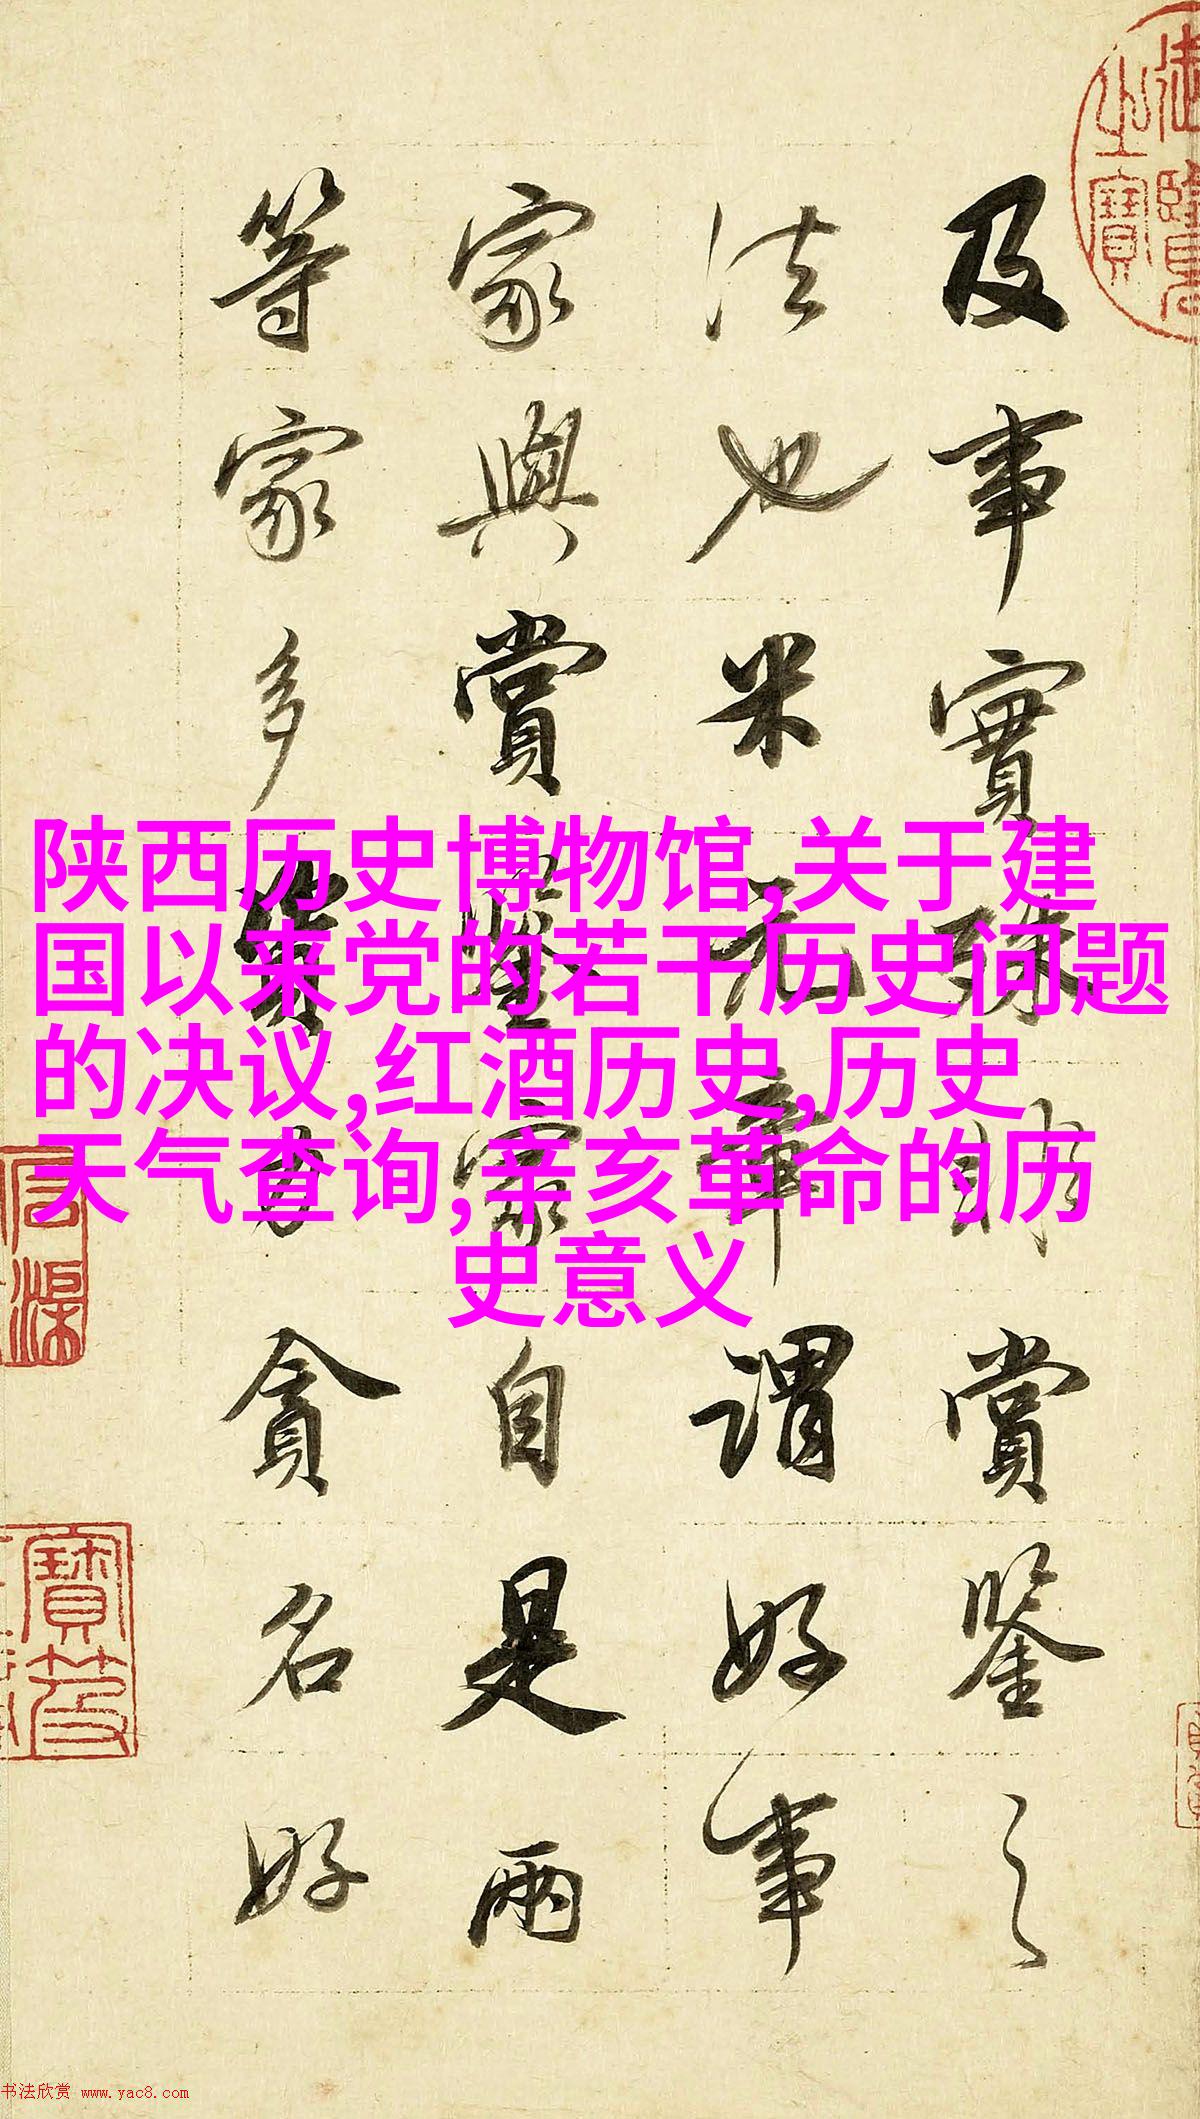 及事實殊賞鑒之
法也米元章謂好事
家與賞鑒家自是兩
等家多資力貪名好
陕西历史博物馆,关于建
国以来党的若干历史问题
的决议,红酒历史,历史
天气查询,辛亥革命的历
史意义
之寶
寶笈
书法欣赏 www.yac8.com